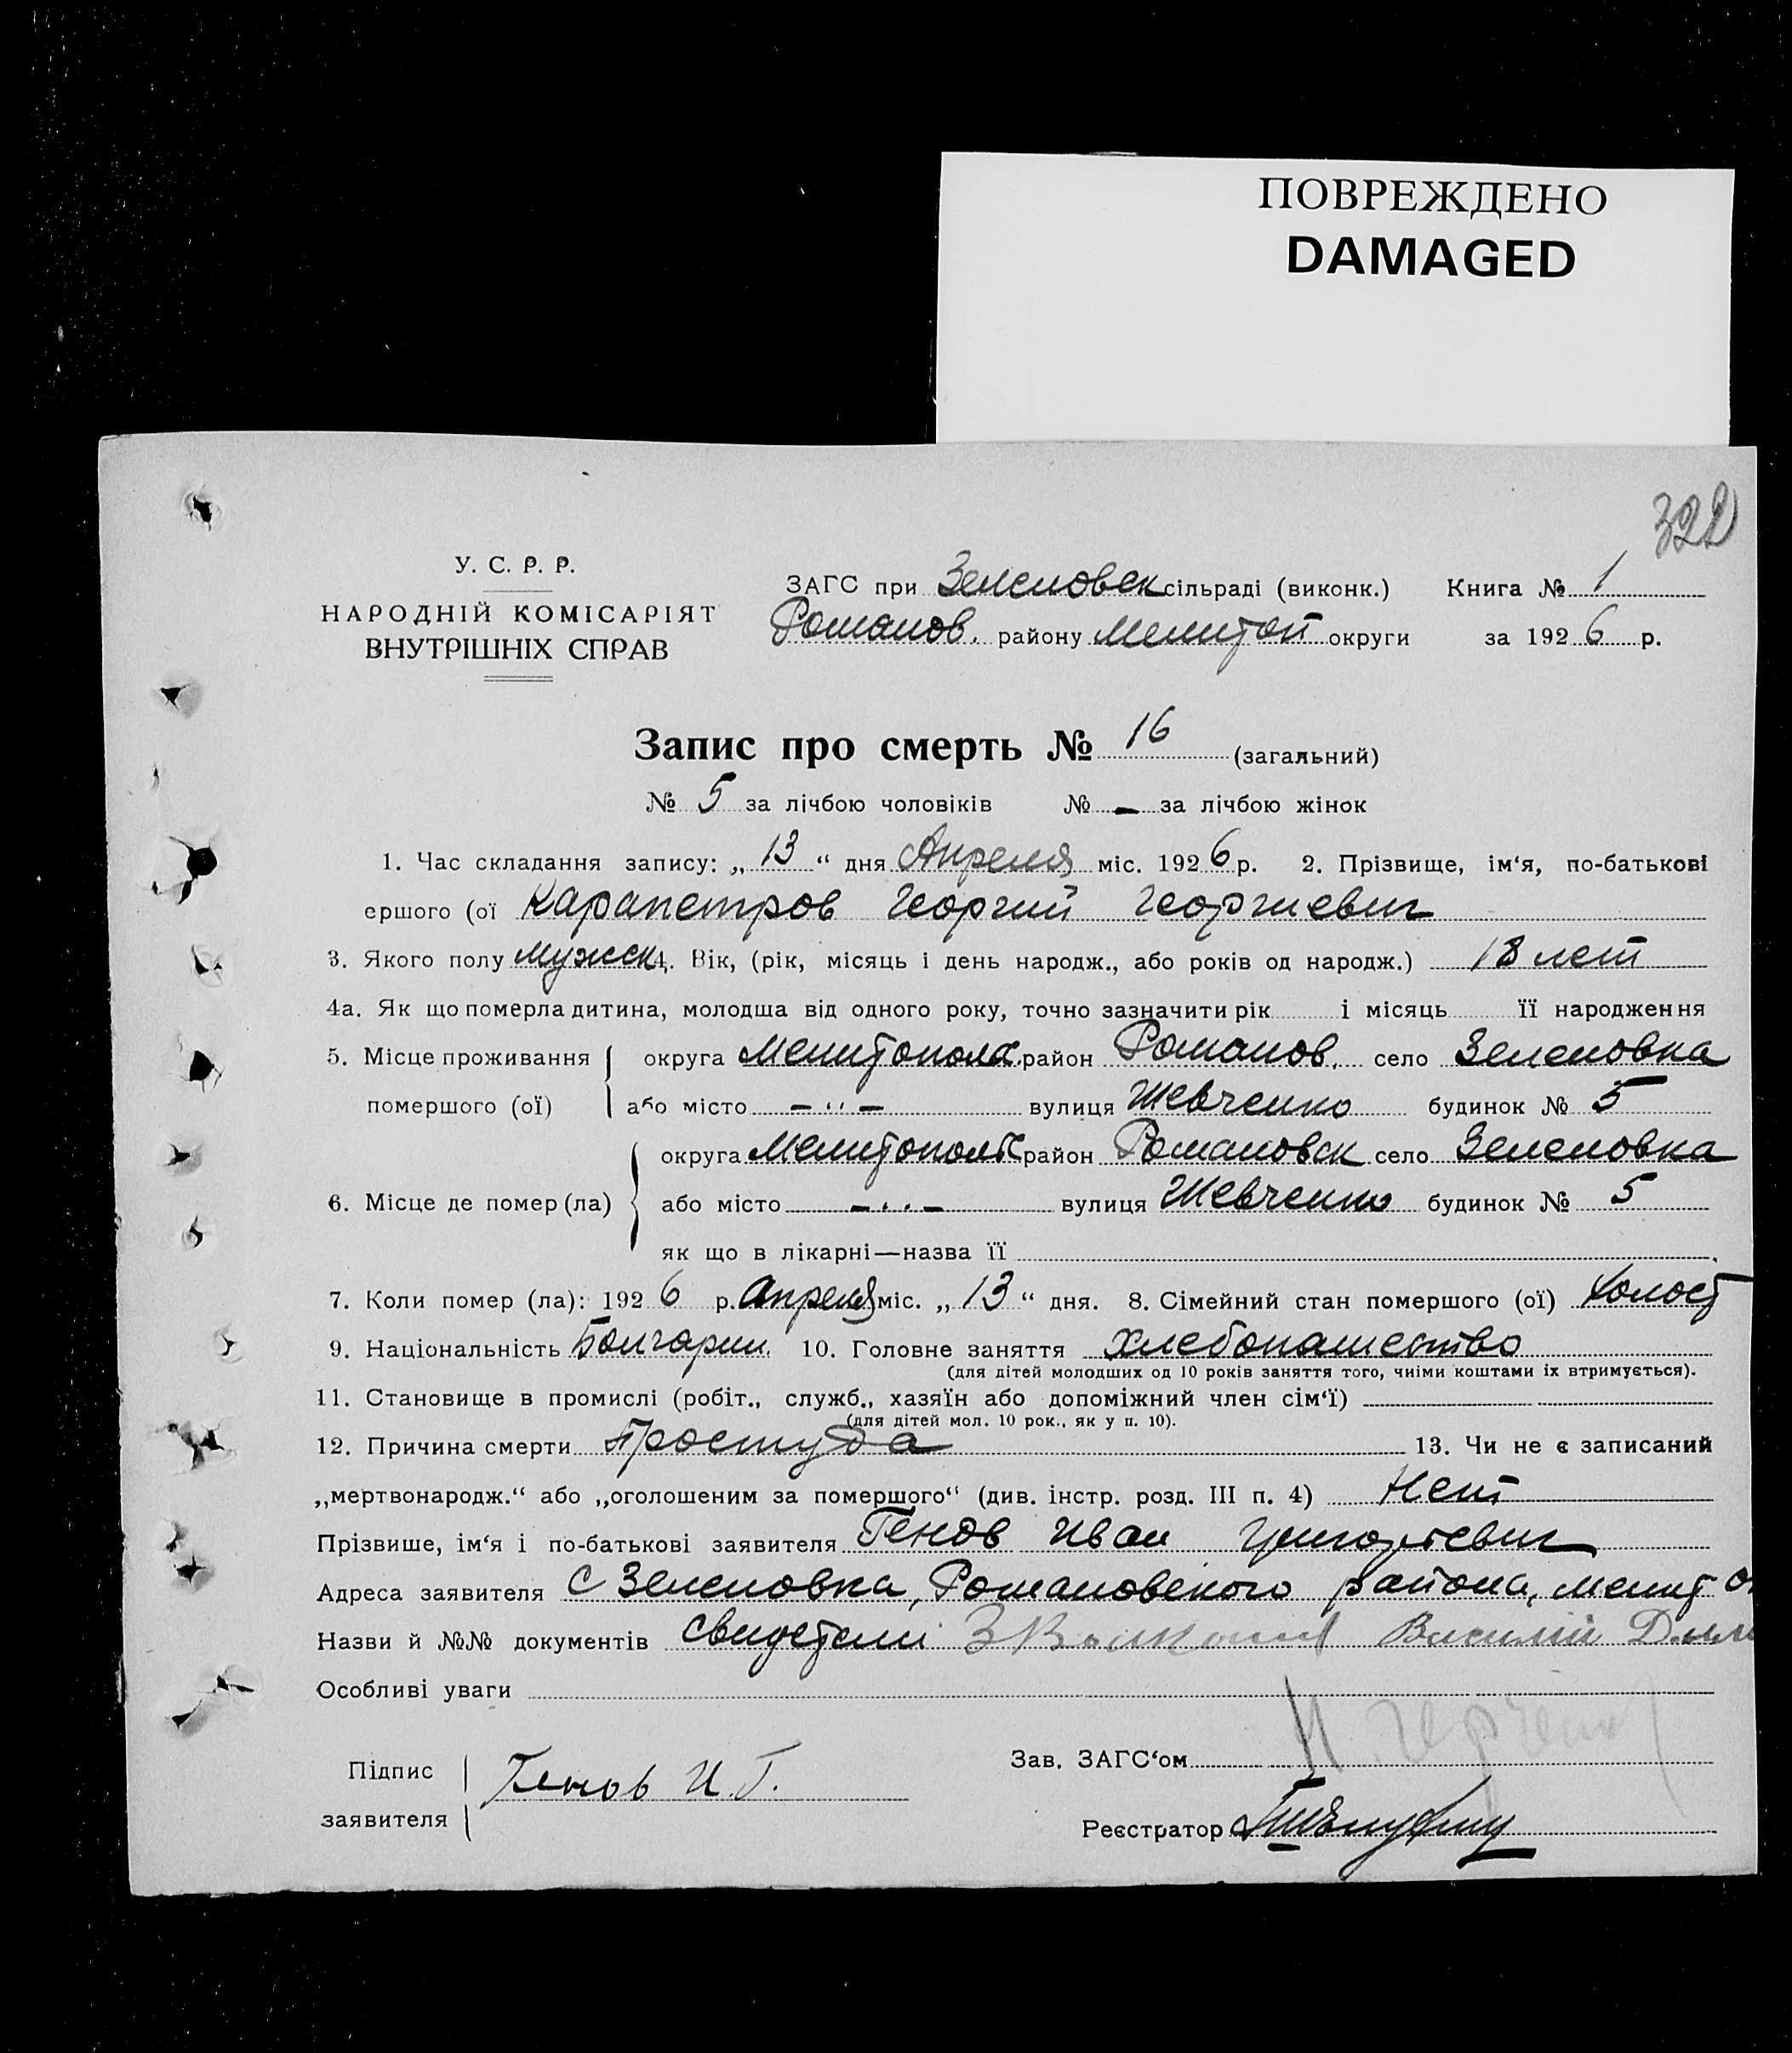 ПОВРЕЖДЕНО
DAMAGED
322
У. С. Р. Р.
НАРОДНІЙ КОМІСАРІЯТ
ВНУТРІШНІХ СПРАВ
ЗАГС при Зеленовск сільраді (виконк.) Книга № 1
Романов. району Мелитоп округи за 1926 р.
Запис про смерть № 16 (загальний)
№ 5 за лічбою чоловіків № — за лічбою жінок
1. Час складання запису: „13“ дня Апреля міс. 1926 р. 2. Прізвище, ім‘я, по-батькові
ершого (ої Карапетров Георгий Георгиевич
3. Якого полу мужск 4. Вік, (рік, місяць і день народж., або років од народж.) 18 лет
4а. Як що померла дитина, молодша від одного року, точно зазначити рік і місяць її народження
5. Місце проживання округа Мелитопол район Романов. село Зеленовка
помершого (ої) або місто — „ — вулиця Шевченко будинок № 5
округа Мелитопол район Романовск село Зеленовка
6. Місце де помер (ла) або місто — „ — вулиця Шевченко будинок № 5
як що в лікарні—назва її
7. Коли помер (ла): 1926 р. Апреля міс. „13“ дня. 8. Сімейний стан помершого (ої) Холост
9. Національність Болгарин. 10. Головне заняття хлебопашество
(для дітей молодших од 10 років заняття того, чиїми коштами їх втримується).
11. Становище в промислі (робіт., служб., хазяїн або допоміжний член сім‘ї) —
(для дітей мол. 10 рок., як у п. 10).
12. Причина смерти Простуда 13. Чи не є записаний
„мертвонародж.“ або „оголошеним за помершого“ (див. інстр. розд. III п. 4) Нет
Прізвище, ім‘я і по-батькові заявителя Генов Иван Григорьевич
Адреса заявителя С Зеленовка, Романовского района, Мелит о
Назви й №№ документів свидетели Василий
Особливі уваги
Підпис заявителя Генов И. Г.
Зав. ЗАГС‘ом
Реєстратор